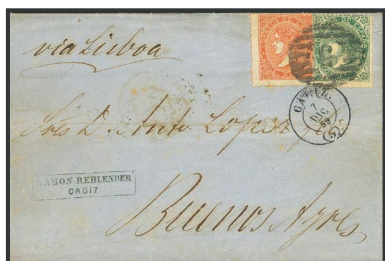 via Lisboa
CADIZ
7
DIC
(5)
Sres D. Anto Lopez
RAMON REHLENDER
CADIZ
Buenos Ayres